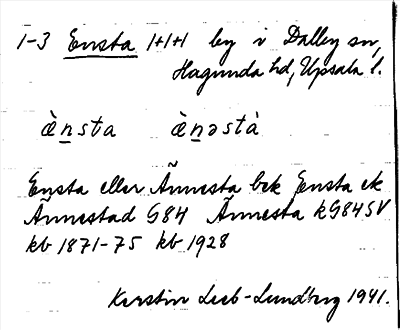 1-3 Ensta 1+1+1 by i Dalby sn,
Hagunda hd, Upsala l.
ɛ̀n̲sta ɛ̀n̲əstà
Ensta eller Ännesta bek Ensta ek
Ännestad G84 Ännesta kG84SV
kb 1871-75 kb 1928
Kerstin Leeb-Lundberg 1941.